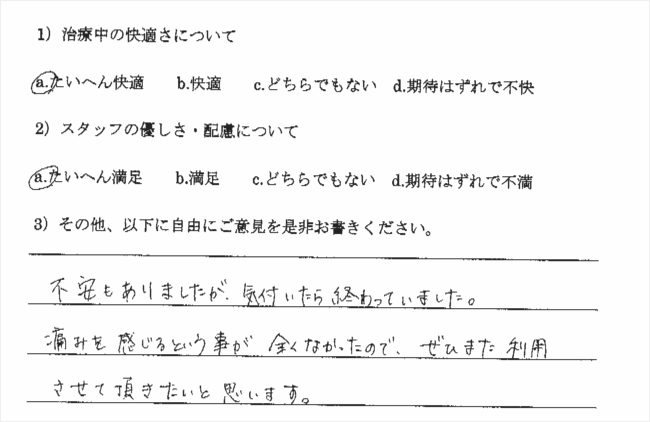 1) 治療中の快適さについて
a.たいへん快適 b.快適 c.どちらでもない d.期待はずれで不快
2) スタッフの優しさ・配慮について
a.たいへん満足 b.満足 c.どちらでもない d.期待はずれで不満
3) その他、以下に自由にご意見を是非お書きください。
不安もありましたが、気付いたら終わっていました。
痛みを感じるという事が全くなかったので、ぜひまた利用
させて頂きたいと思います。